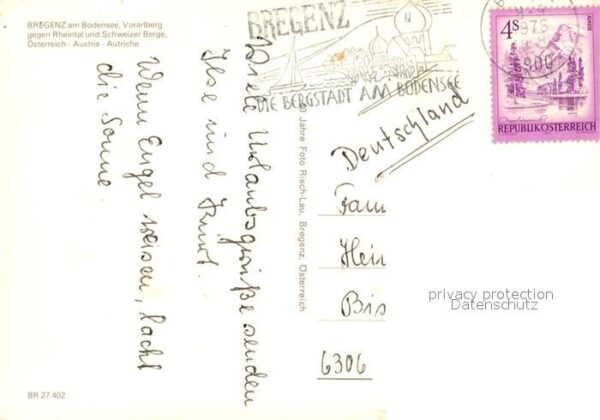 BREGENZ am Bodensee, Vorarlberg
gegen Rheintal und Schweizer Berge,
Österreich - Austria - Autriche
Wenn Engel reisen, lacht
die Sonne.
Viele Urlaubsgrüße senden
Ilse und Kurt.
BR 27.402
0 Jahre Foto Risch-Lau, Bregenz, Österreich
BREGENZ
DIE BERGSTADT AM BODENSEE
976
6900
4S
REPUBLIK ÖSTERREICH
Deutschland
Fam
Hein
Bis
6306
privacy protection
Datenschutz